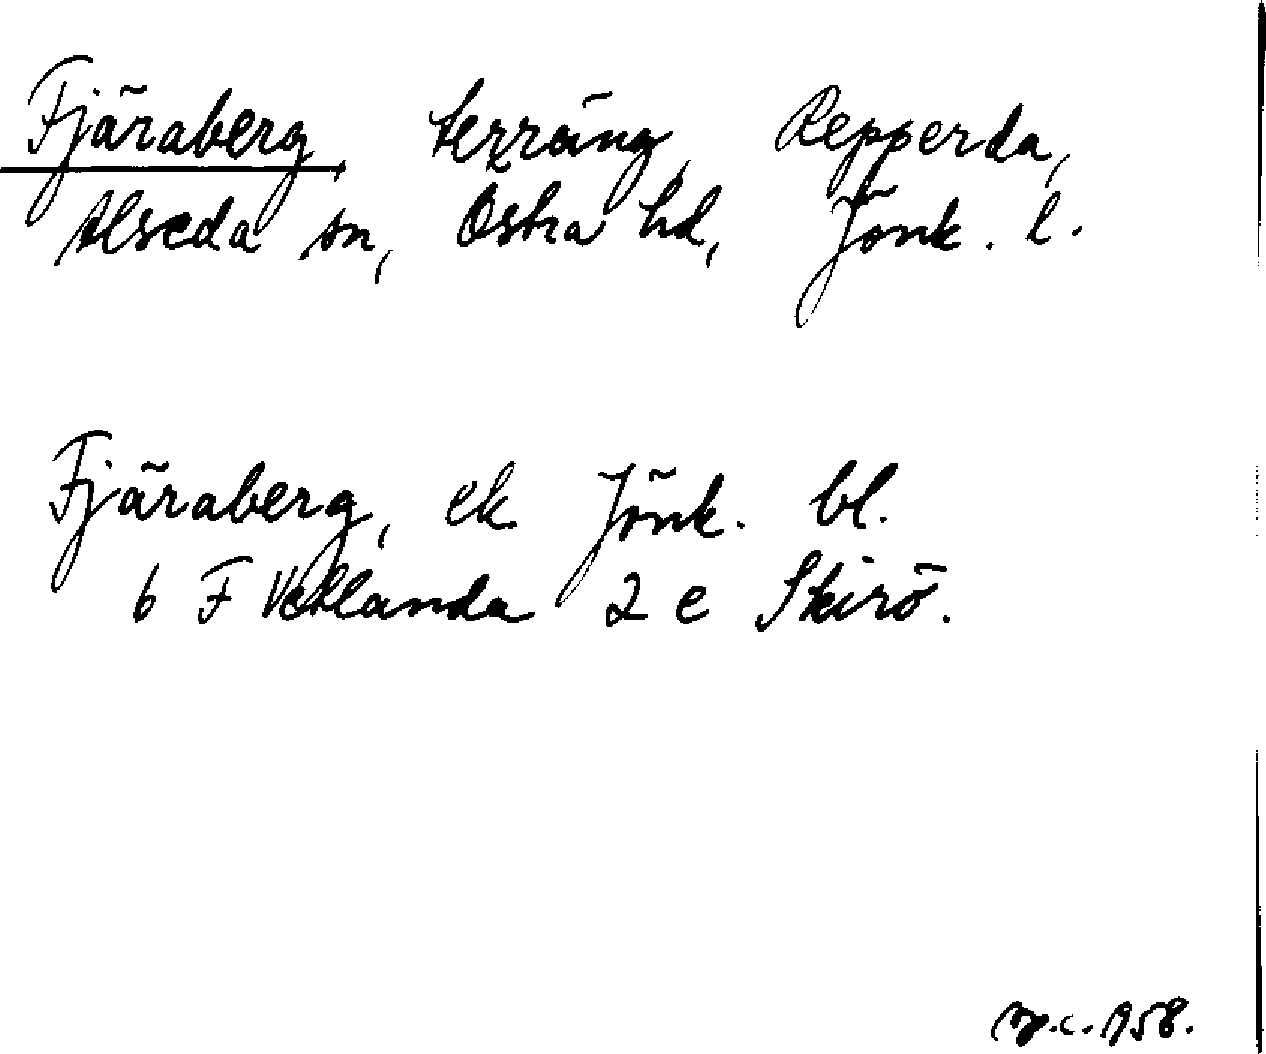 Fjäraberg, terräng, Repperda,
Alseda sn, Östra hd, Jönk. l.
Fjäraberg, ek Jönk. bl.
6 F Vetlanda 2 e Skirö.
1958.